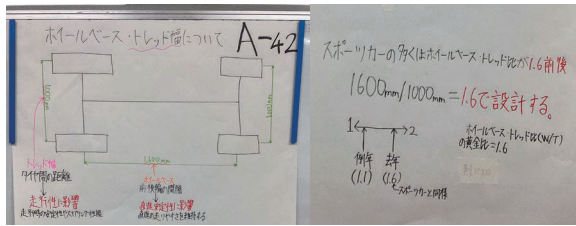 ホイールベース・トレッド幅について
A-42
1000mm
1600mm
トレッド幅
タイヤ間の距離
走行性に影響
ホイールベース
前後輪の間隔
直進安定性に影響
スポーツカーの多くはホイールベース・トレッド比が1.6前後
1600mm/1000mm=1.6で設計する。
1 2
昨年 去年
(1.1) (1.6)
スポーツカーと同様
ホイールベース・トレッド比(W/T)
の黄金比=1.6